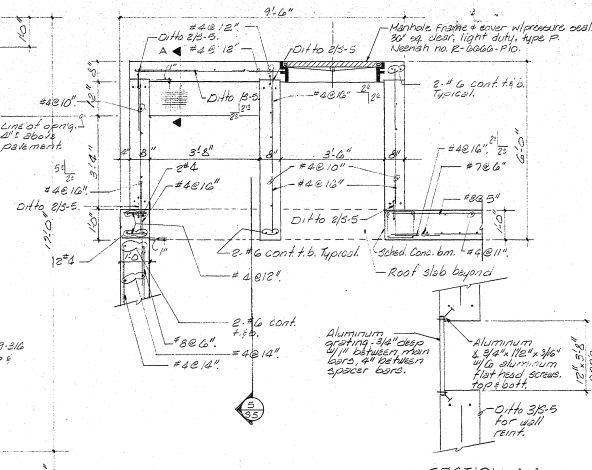 9'-6"
1'0"
#4@12"
Ditto 2/S-5.
A
#4@12"
Ditto 2/S-5
Manhole Frame & cover w/pressure seal.
36" sq. clear, light duty, type P.
Neenah no. R-6666-P10.
1"
8"
12"
#4@10"
Ditto 1/S-5.
#4@16"
2-#6 cont. t&b.
Typical.
Line of op'n'g.
4" above
pavement.
3'4"
4"
8"
3'-8"
8"
3'-6"
8"
#4@16".
#7@6"
6'0"
2-#4
#4@16"
#4@10"
#4@16"
#4@16".
Ditto 2/S-5.
#8@5"
Ditto 2/S-5
1'0"
1'0"
12'0"
2-#6 cont. t.b. Typical.
Sched. Conc. bm.
#4@11".
Roof slab beyond
1'-0"
1"
12#4
#4@12".
2-#6 cont.
t.&b.
#8@6".
#4@14".
#4@14".
Aluminum
grating-3/4" deep
w/1" between main
bars, 4" between
spacer bars.
Aluminum
∠ 3/4"x1 1/2"x3/16"
w/6 aluminum
flat head screws.
top & bott.
12"x3'8"
5
S5
Ditto 3/S-5
for wall
reinf.